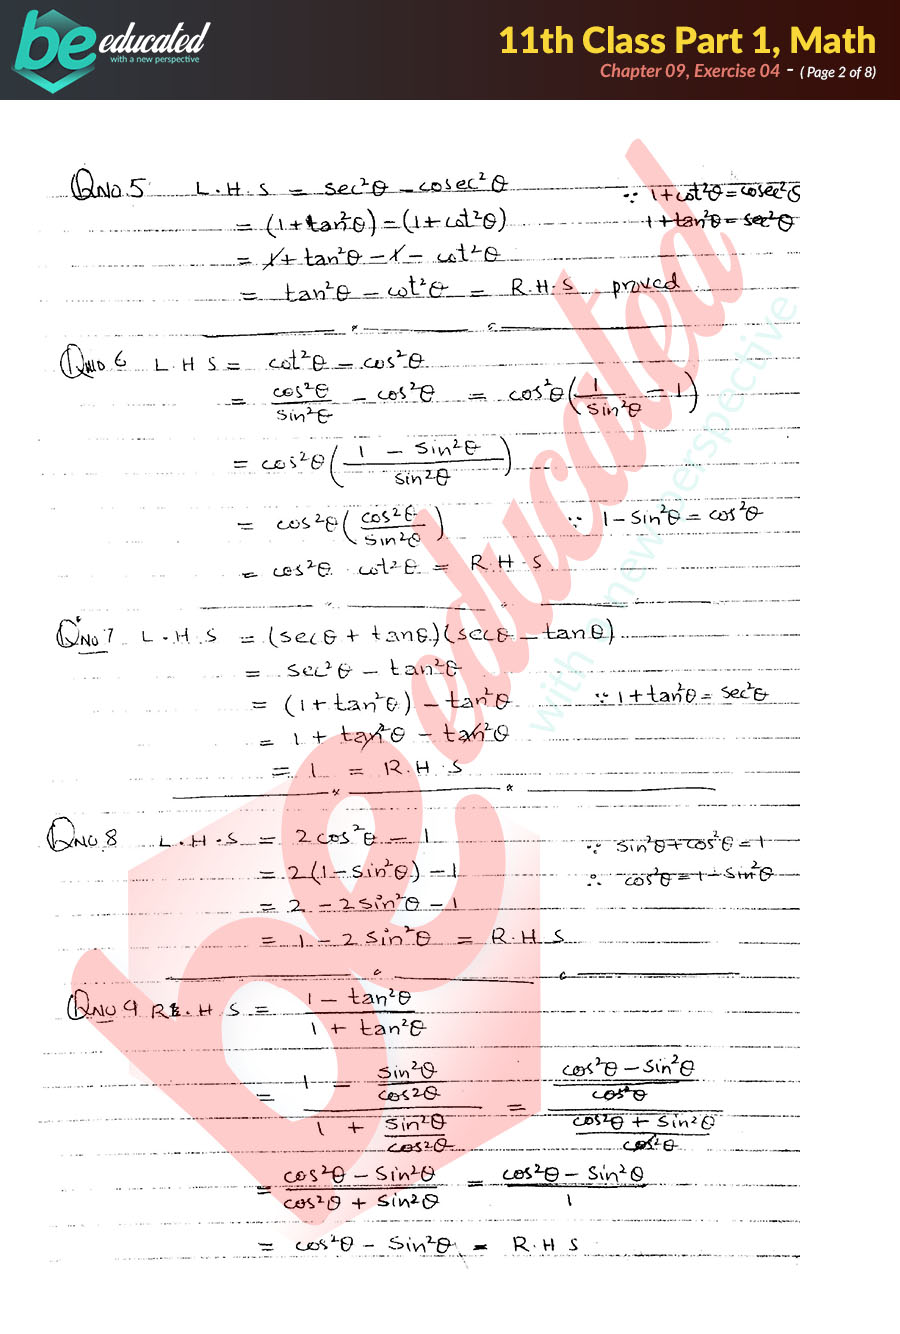 be educated
with a new perspective
11th Class Part 1, Math
Chapter 09, Exercise 04 - ( Page 2 of 8)
QNO.5 L.H.S = sec²θ - cosec²θ ∵ 1+cot²θ = cosec²θ
= (1+tan²θ) - (1+cot²θ) 1+tan²θ = sec²θ
= 1+ tan²θ - 1 - cot²θ
= tan²θ - cot²θ = R.H.S proved
QNO 6 L.H S = cot²θ - cos²θ
= cos²θ/sin²θ - cos²θ = cos²θ(1/sin²θ - 1)
= cos²θ(1 - sin²θ/sin²θ)
= cos²θ(cos²θ/sin²θ) ∵ 1-sin²θ = cos²θ
= cos²θ . cot²θ = R.H.S
QNO 7 L.H.S = (secθ + tanθ)(secθ - tanθ)
= sec²θ - tan²θ
= (1+tan²θ) - tan²θ ∵ 1+tan²θ = sec²θ
= 1 + tan²θ - tan²θ
= 1 = R.H.S
QNO.8 L.H.S = 2cos²θ - 1 ∵ sin²θ+cos²θ = 1
= 2(1-sin²θ) - 1 ∴ cos²θ = 1-sin²θ
= 2 - 2sin²θ - 1
= 1 - 2sin²θ = R.H.S
QNO 9 R.H.S = 1 - tan²θ
1 + tan²θ
= 1 - sin²θ/cos²θ = cos²θ - sin²θ/cos²θ
1 + sin²θ/cos²θ cos²θ + sin²θ/cos²θ
= cos²θ - sin²θ/cos²θ + sin²θ = cos²θ - sin²θ/1
= cos²θ - sin²θ = R.H.S
be educated
with a new perspective